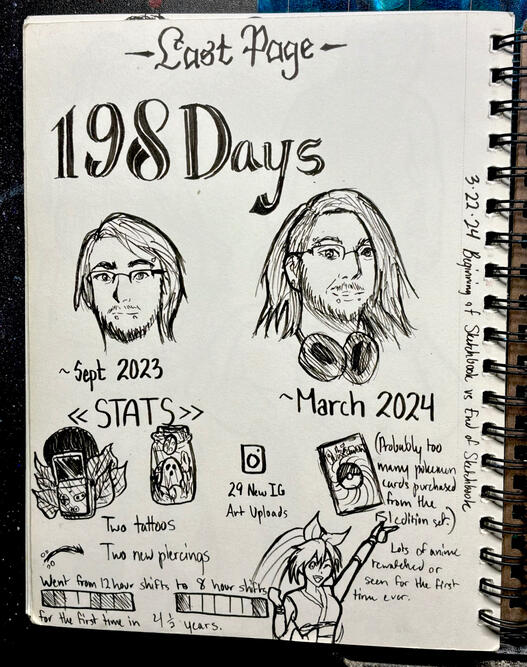 -Last Page-
198 Days
3·22·24 Beginning of Sketchbook vs End of Sketchbook
~Sept 2023
~March 2024
<<STATS>>
Two tattoos
29 New IG
Art Uploads
(Probably too
many pokemon
cards purchased
from the
151 edition set.)
Two new piercings
Lots of anime
rewatched or
seen for the first
time ever.
Went from 12 hour shifts to 8 hour shifts
for the first time in 4 ½ years.